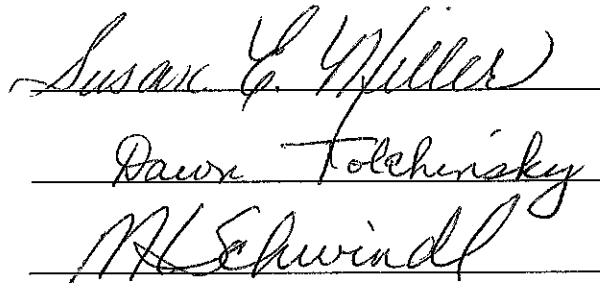 Susan E. Miller
Dawn Tolchinsky
M Schwindl